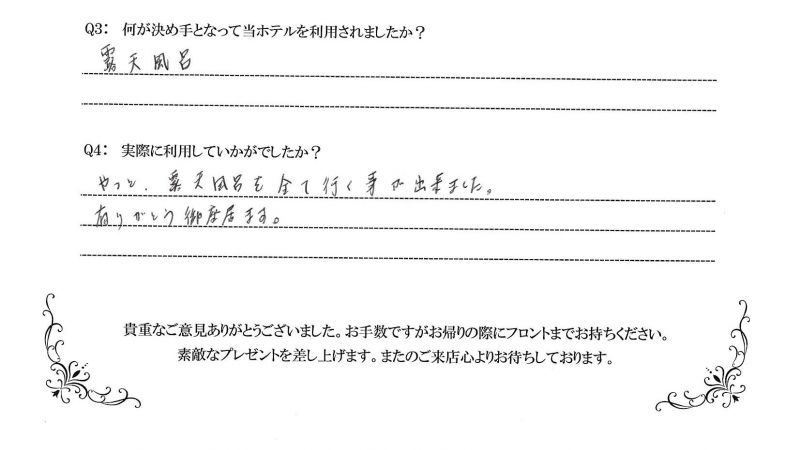 Q3: 何が決め手となって当ホテルを利用されましたか？
露天風呂
Q4: 実際に利用していかがでしたか？
やっと、露天風呂を全て行く事が出来ました。
有りがとう御座居ます。
貴重なご意見ありがとうございました。お手数ですがお帰りの際にフロントまでお持ちください。
素敵なプレゼントを差し上げます。またのご来店心よりお待ちしております。